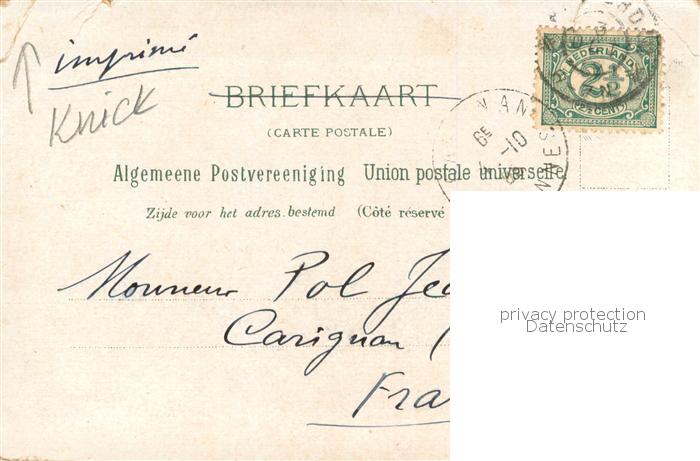 imprimé
Knick
BRIEFKAART
(CARTE POSTALE)
Algemeene Postvereeniging Union postale universelle
Zijde voor het adres bestemd (Côté réservé
NEDERLAND
2½
(2½ CENT)
6E
-10
Monsieur Pol
Carignan (
Fra
privacy protection
Datenschutz